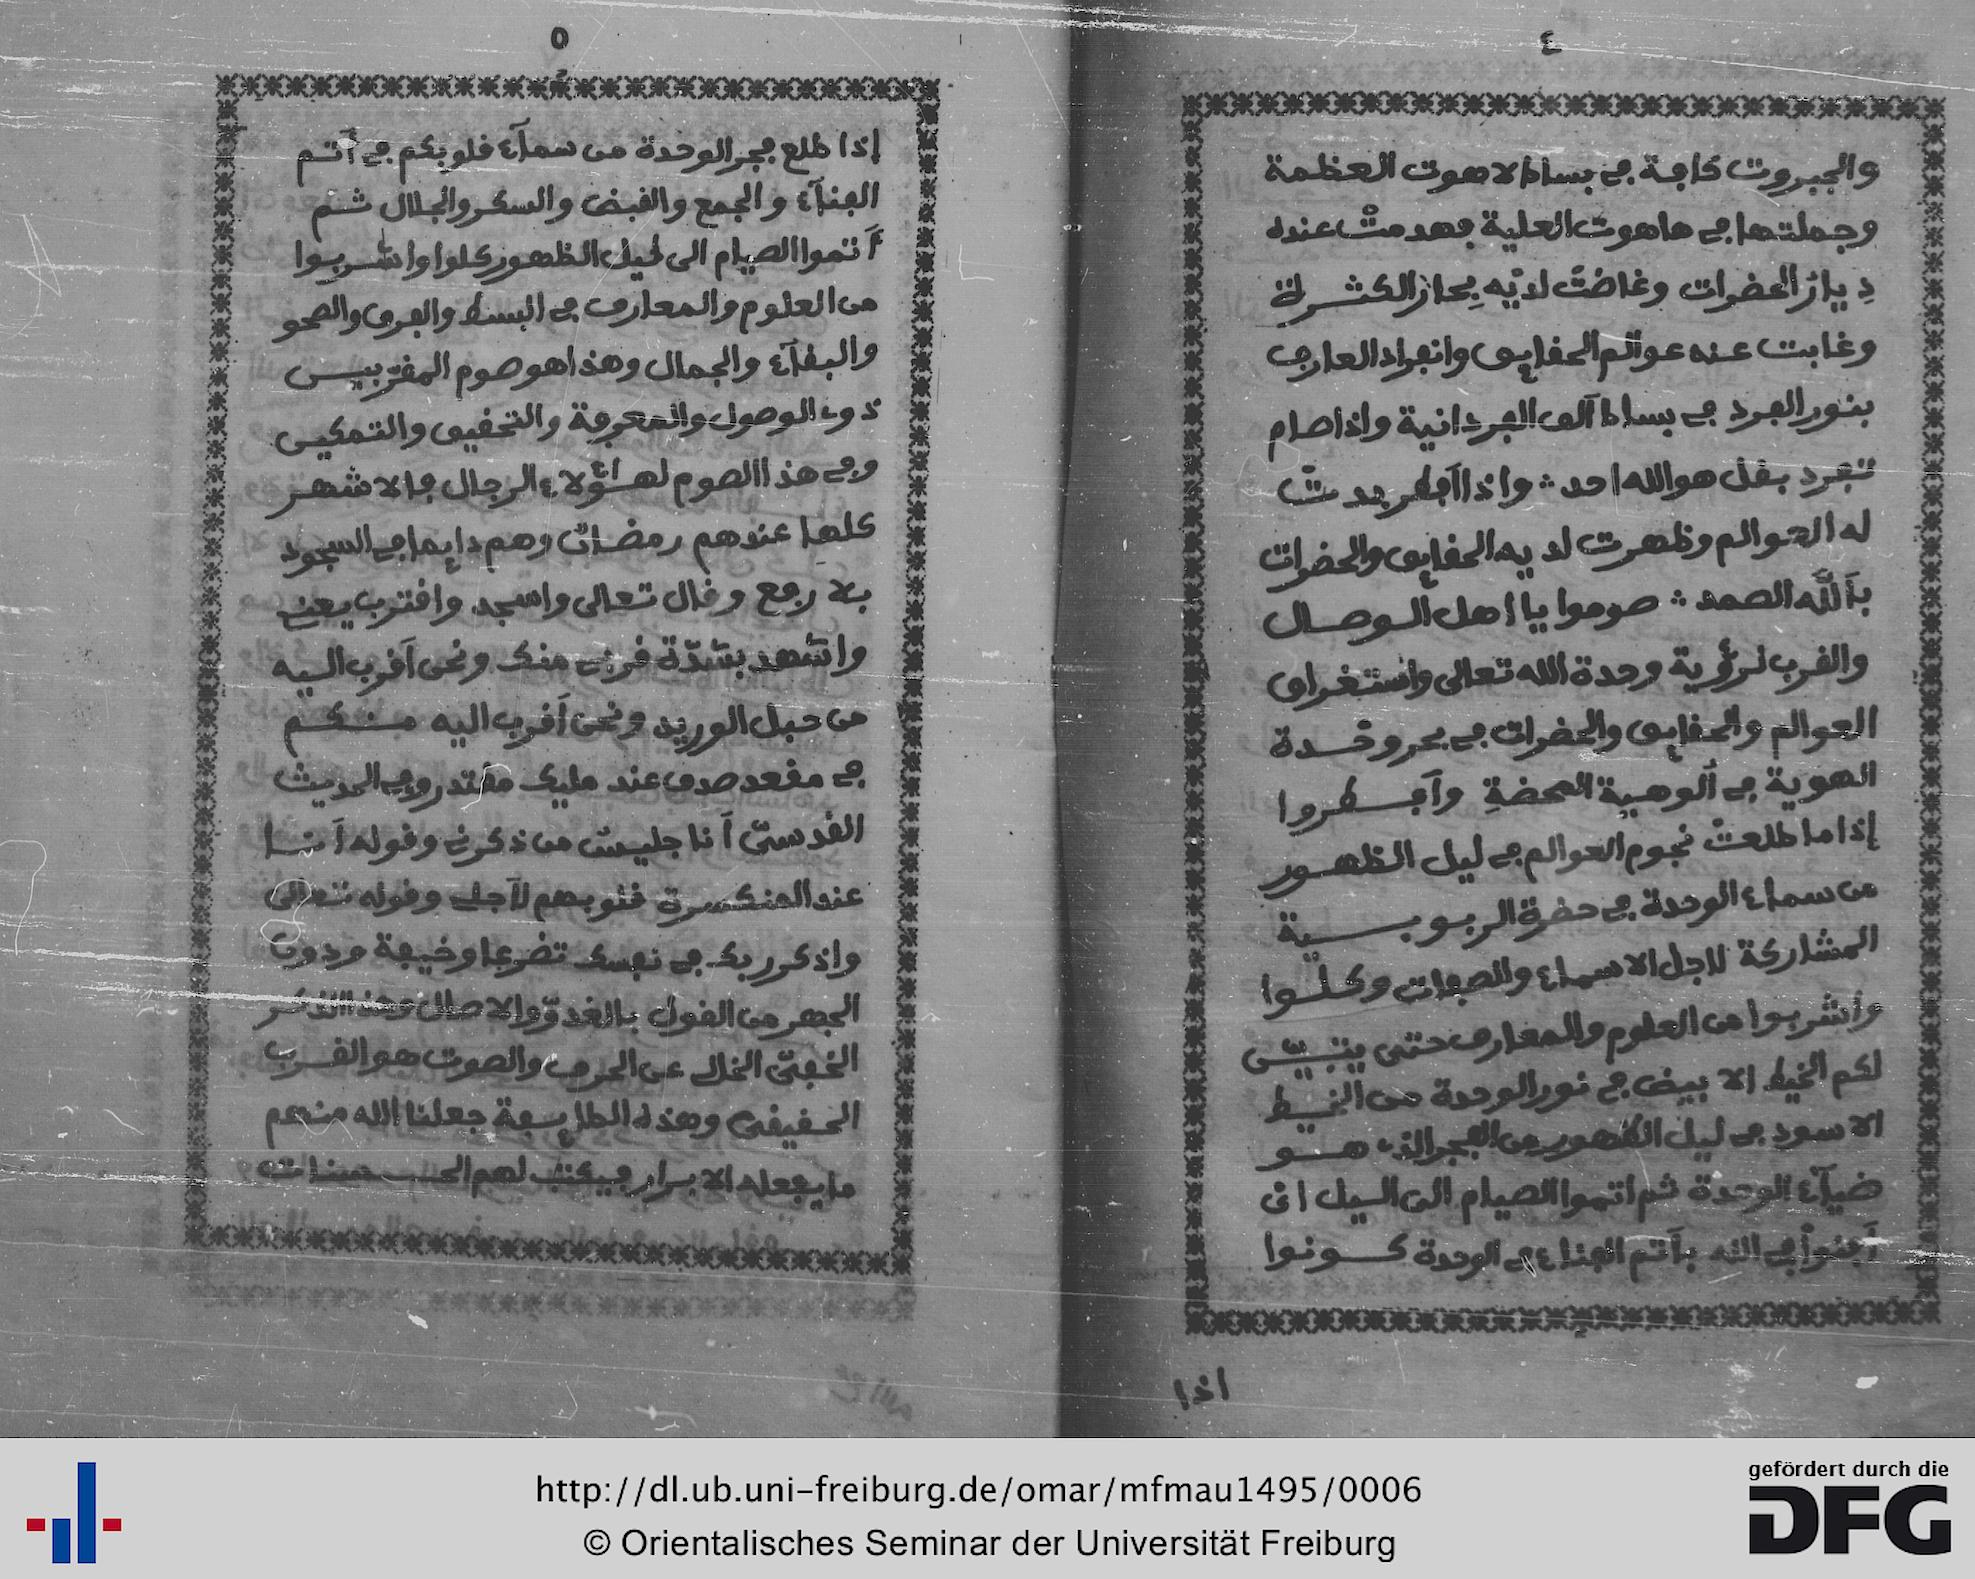 ٤
والجبروت كافة في بساط لاهوت العظمة
وجملتها في هاهوت العلية فهدمت عنده
ديار الحضرات وغاضت لديه بحار الكثرة
وغابت عنه عوالم الحقايق وانفراد العارف
بنور الفرد في بساط ألف الفردانية واذا صام
تفرد بقل هو الله احد واذا أفطر بدت
له العوالم وظهرت لديه الحقايق والحضرات
بألله الصمد صوموا يا اهل الوصال
والقرب لرؤية وحدة الله تعالى واستغراق
العوالم والحقايق والحضرات في بحر وحدة
الهوية في ألوهية المحضة وأفطروا
إذا ما طلعت نجوم العوالم في ليل الظهور
من سماء الوحدة في حضرة الربوبية
المشاركة لاجل الاسماء والصفات وكلوا
واشربوا من العلوم والمعارف حتى يتبين
لكم الخيط الابيض في نور الوحدة من الخيط
الاسود في ليل الظهور من الفجر الذي هو
ضيآء الوحدة ثم اتموا الصيام الى اليل اى
أفنوا في الله بأتم الفناء في الوحدة كونوا
اذا
٥
إذا طلع فجر الوحدة من سمآء قلوبكم في أتم
الفنآء والجمع والقبض والسكر والجلال ثم
أتموا الصيام الى ليل الظهور كلوا واشربوا
من العلوم والمعارف في البسط والفرق والصحو
والبقآء والجمال وهذا هو صوم المقربيس
ذوى الوصول والمعرفة والتحقيق والتمكين
وفي هذا الصوم لهؤلاء الرجال فالاشهر
كلها عندهم رمضان وهم دايما في السجود
بلا رفع وقال تعالى واسجد واقترب يعنى
واشهد بشدة قربى منك ونحن أقرب اليه
من حبل الوريد ونحن أقرب اليه منكم
في مقعد صدق عند مليك مقتدر وفي الحديث
القدسى أنا جليس من ذكرنى وقوله أنا
عند المنكسرة قلوبهم لأجلى وقوله تعالى
واذكر ربك في نفسك تضرعا وخيفة ودون
الجهر من القول بالغدو والاصال وهذا الذكر
الخفى الخالى عن الحرف والصوت هو القرب
الحقيقى وهذه الطايفة جعلنا الله منهم
ما يفعله الابرار فيكتب لهم حسنات
http://dl.ub.uni-freiburg.de/omar/mfmau1495/0006
© Orientalisches Seminar der Universität Freiburg
gefördert durch die
DFG